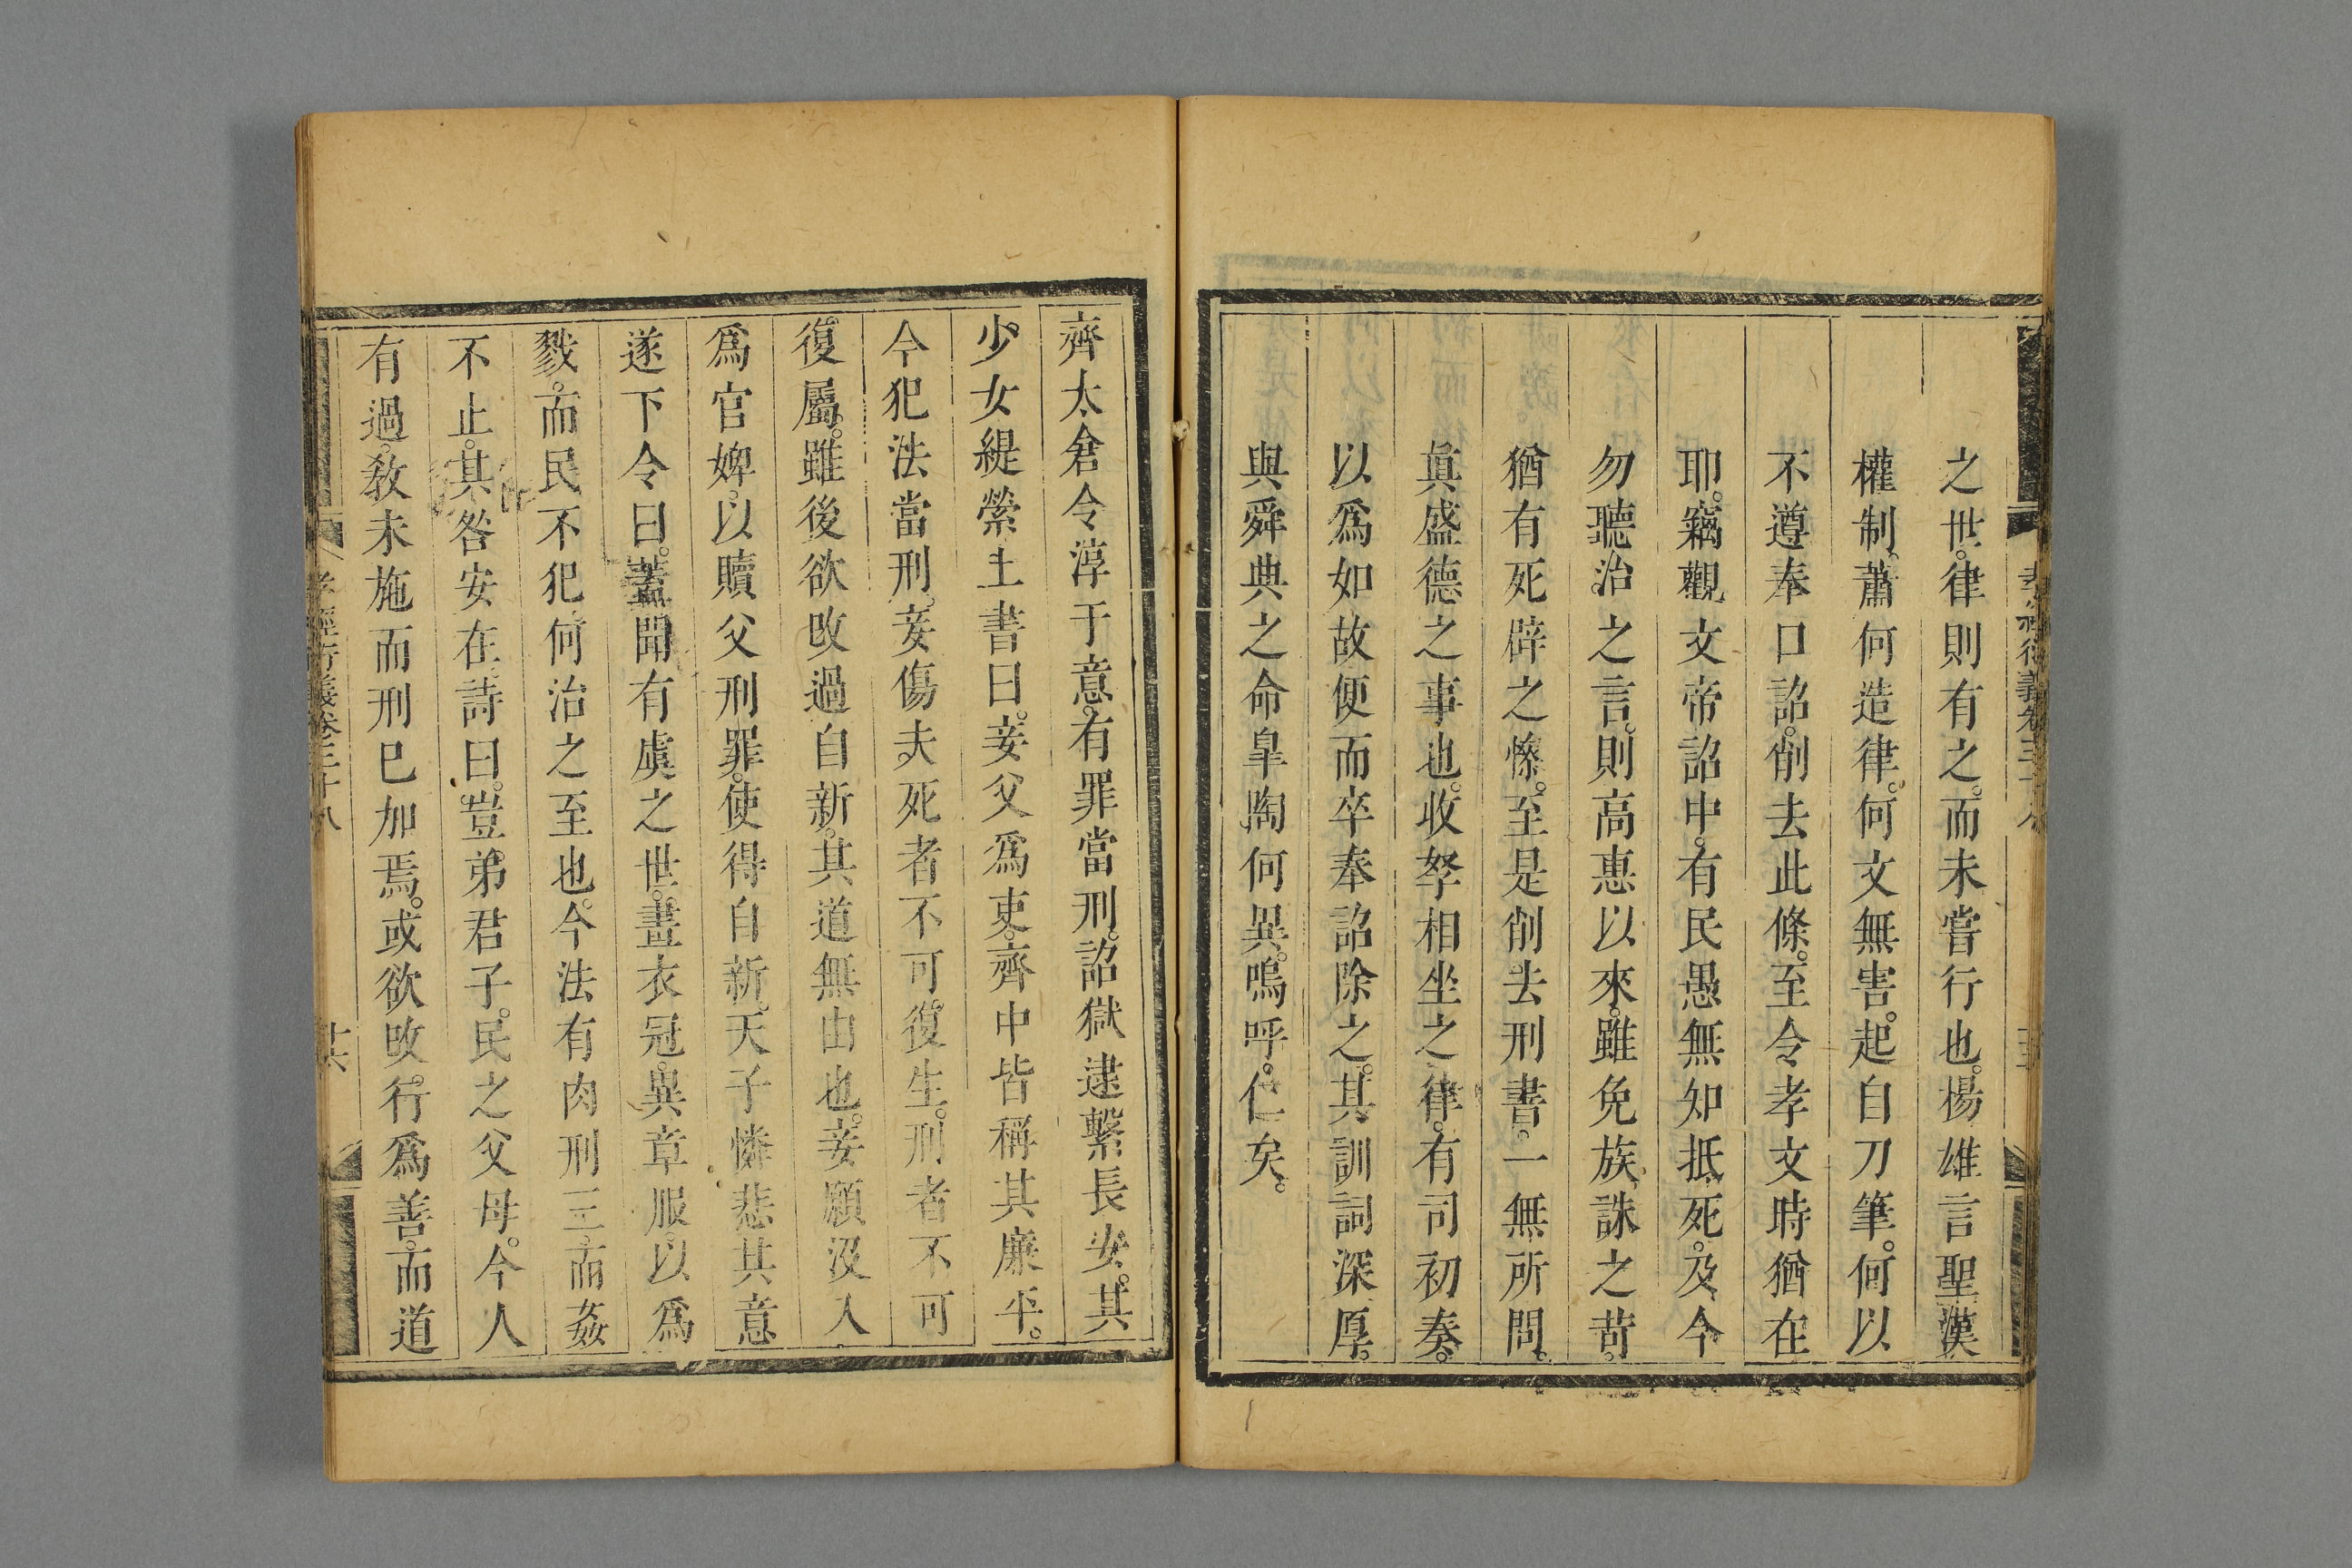 之世。律則有之。而未嘗行也。楊雄言聖漢
權制。蕭何造律。何文無害。起自刀筆。何以
不遵奉口詔。削去此條。至令孝文時猶在
耶。竊觀文帝詔中。有民愚無知抵死。及今
勿聽治之言。則高惠以來。雖免族誅之苛。
猶有死辟之慘。至是削去刑書。一無所問。
眞盛德之事也。收孥相坐之律。有司初奏。
以爲如故便。而卒奉詔除之。其訓詞深厚。
與舜典之命皐陶何異。嗚呼。仁矣。
齊太倉令淳于意。有罪當刑。詔獄逮繫長安。其
少女緹縈上書曰。妾父爲吏。齊中皆稱其廉平。
今犯法當刑。妾傷夫死者不可復生。刑者不可
復屬。雖後欲改過自新。其道無由也。妾願沒入
爲官婢。以贖父刑罪。使得自新。天子憐悲其意
遂下令曰。蓋聞有虞之世。畫衣冠。異章服。以爲
戮。而民不犯。何治之至也。今法有肉刑三。而姦
不止。其咎安在。詩曰。豈弟君子。民之父母。今人
有過。敎未施而刑已加焉。或欲改行爲善。而道
孝經衍義卷三十八
廿六